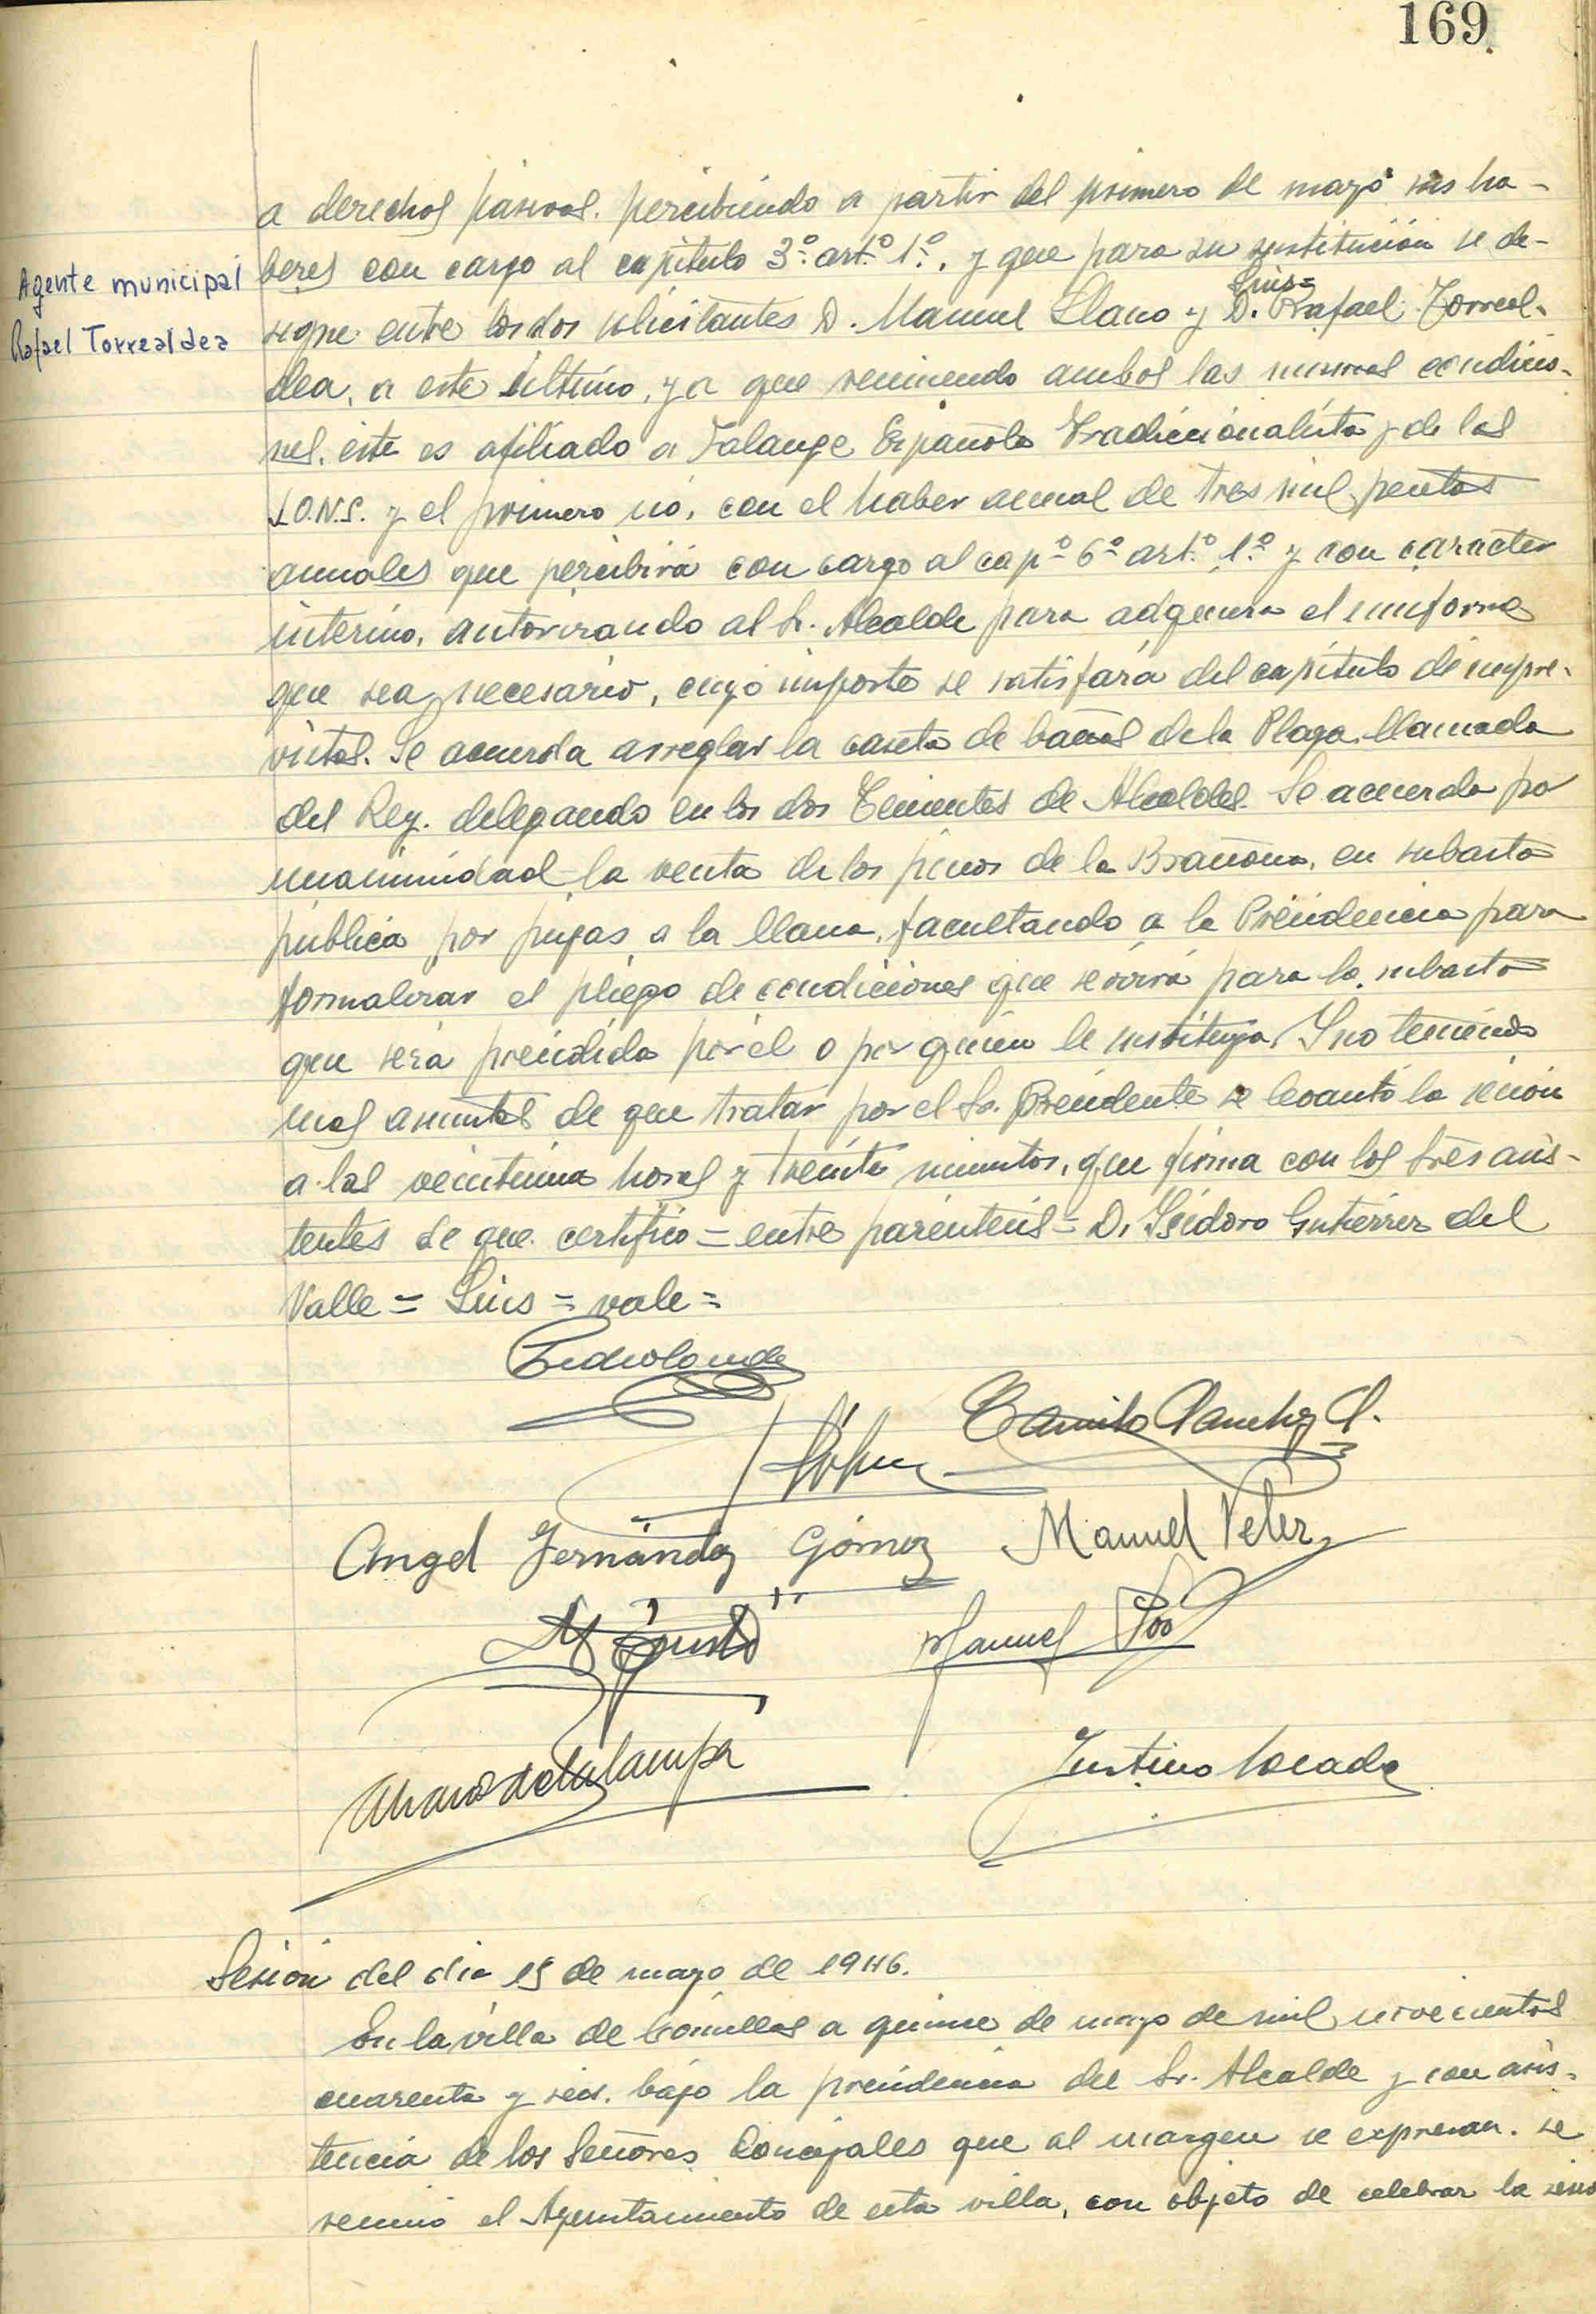 169
a derechos pasivos. percibiendo a partir del primero de mayo sus ha-
Agente municipal
Rafael Torrealdea
beres con cargo al capitulo 3º art.º 1º, y que para su sustitución se de-
Luis=
signe entre los dos solicitantes D. Manuel Llano y D. Rafael Torreal-
dea, a este último, ya que reuniendo ambos las mismas condicio-
nes, éste es afiliado a Falange Española Tradicionalista y de las
J.O.N.S. y el primero nó, con el haber anual de tres mil pesetas
anuales que percibirá con cargo al capº 6º artº 1º y con caracter
interino, autorizando al Sr. Alcalde para adquirir el uniforme
que sea necesario, cuyo importe se satisfará del capítulo de impre-
vistos. Se acuerda arreglar la caseta de baños de la Playa llamada
del Rey. delegando en los dos Tenientes de Alcaldes. Se acuerda por
unanimidad la venta de los pinos de la Brañona, en subasta
pública por pujas a la llana, facultando a la Presidencia para
formalizar el pliego de condiciones que servirá para la subasta
que será presidida por él o por quien le sustituya. Y no teniendo
mas asuntos de que tratar por el Sr. Presidente se levantó la sesión
a las veintiuna horas y treinta minutos, que firma con los Sres asis-
tentes de que certifico = entre parentesis = D. Isidoro Gutierrez del
Valle = Luis = vale =
Camilo Sanchez
Angel Fernández Gómez Manuel Velez
Manuel Poo
Alvaro de la Campa
Justino Mocada
Sesión del dia 15 de mayo de 1946.
En la villa de Comillas a quince de mayo de mil novecientos
cuarenta y seis, bajo la presidencia del Sr. Alcalde y con asis-
tencia de los Señores Concejales que al margen se expresan. se
reunió el Ayuntamiento de esta villa, con objeto de celebrar la sesio